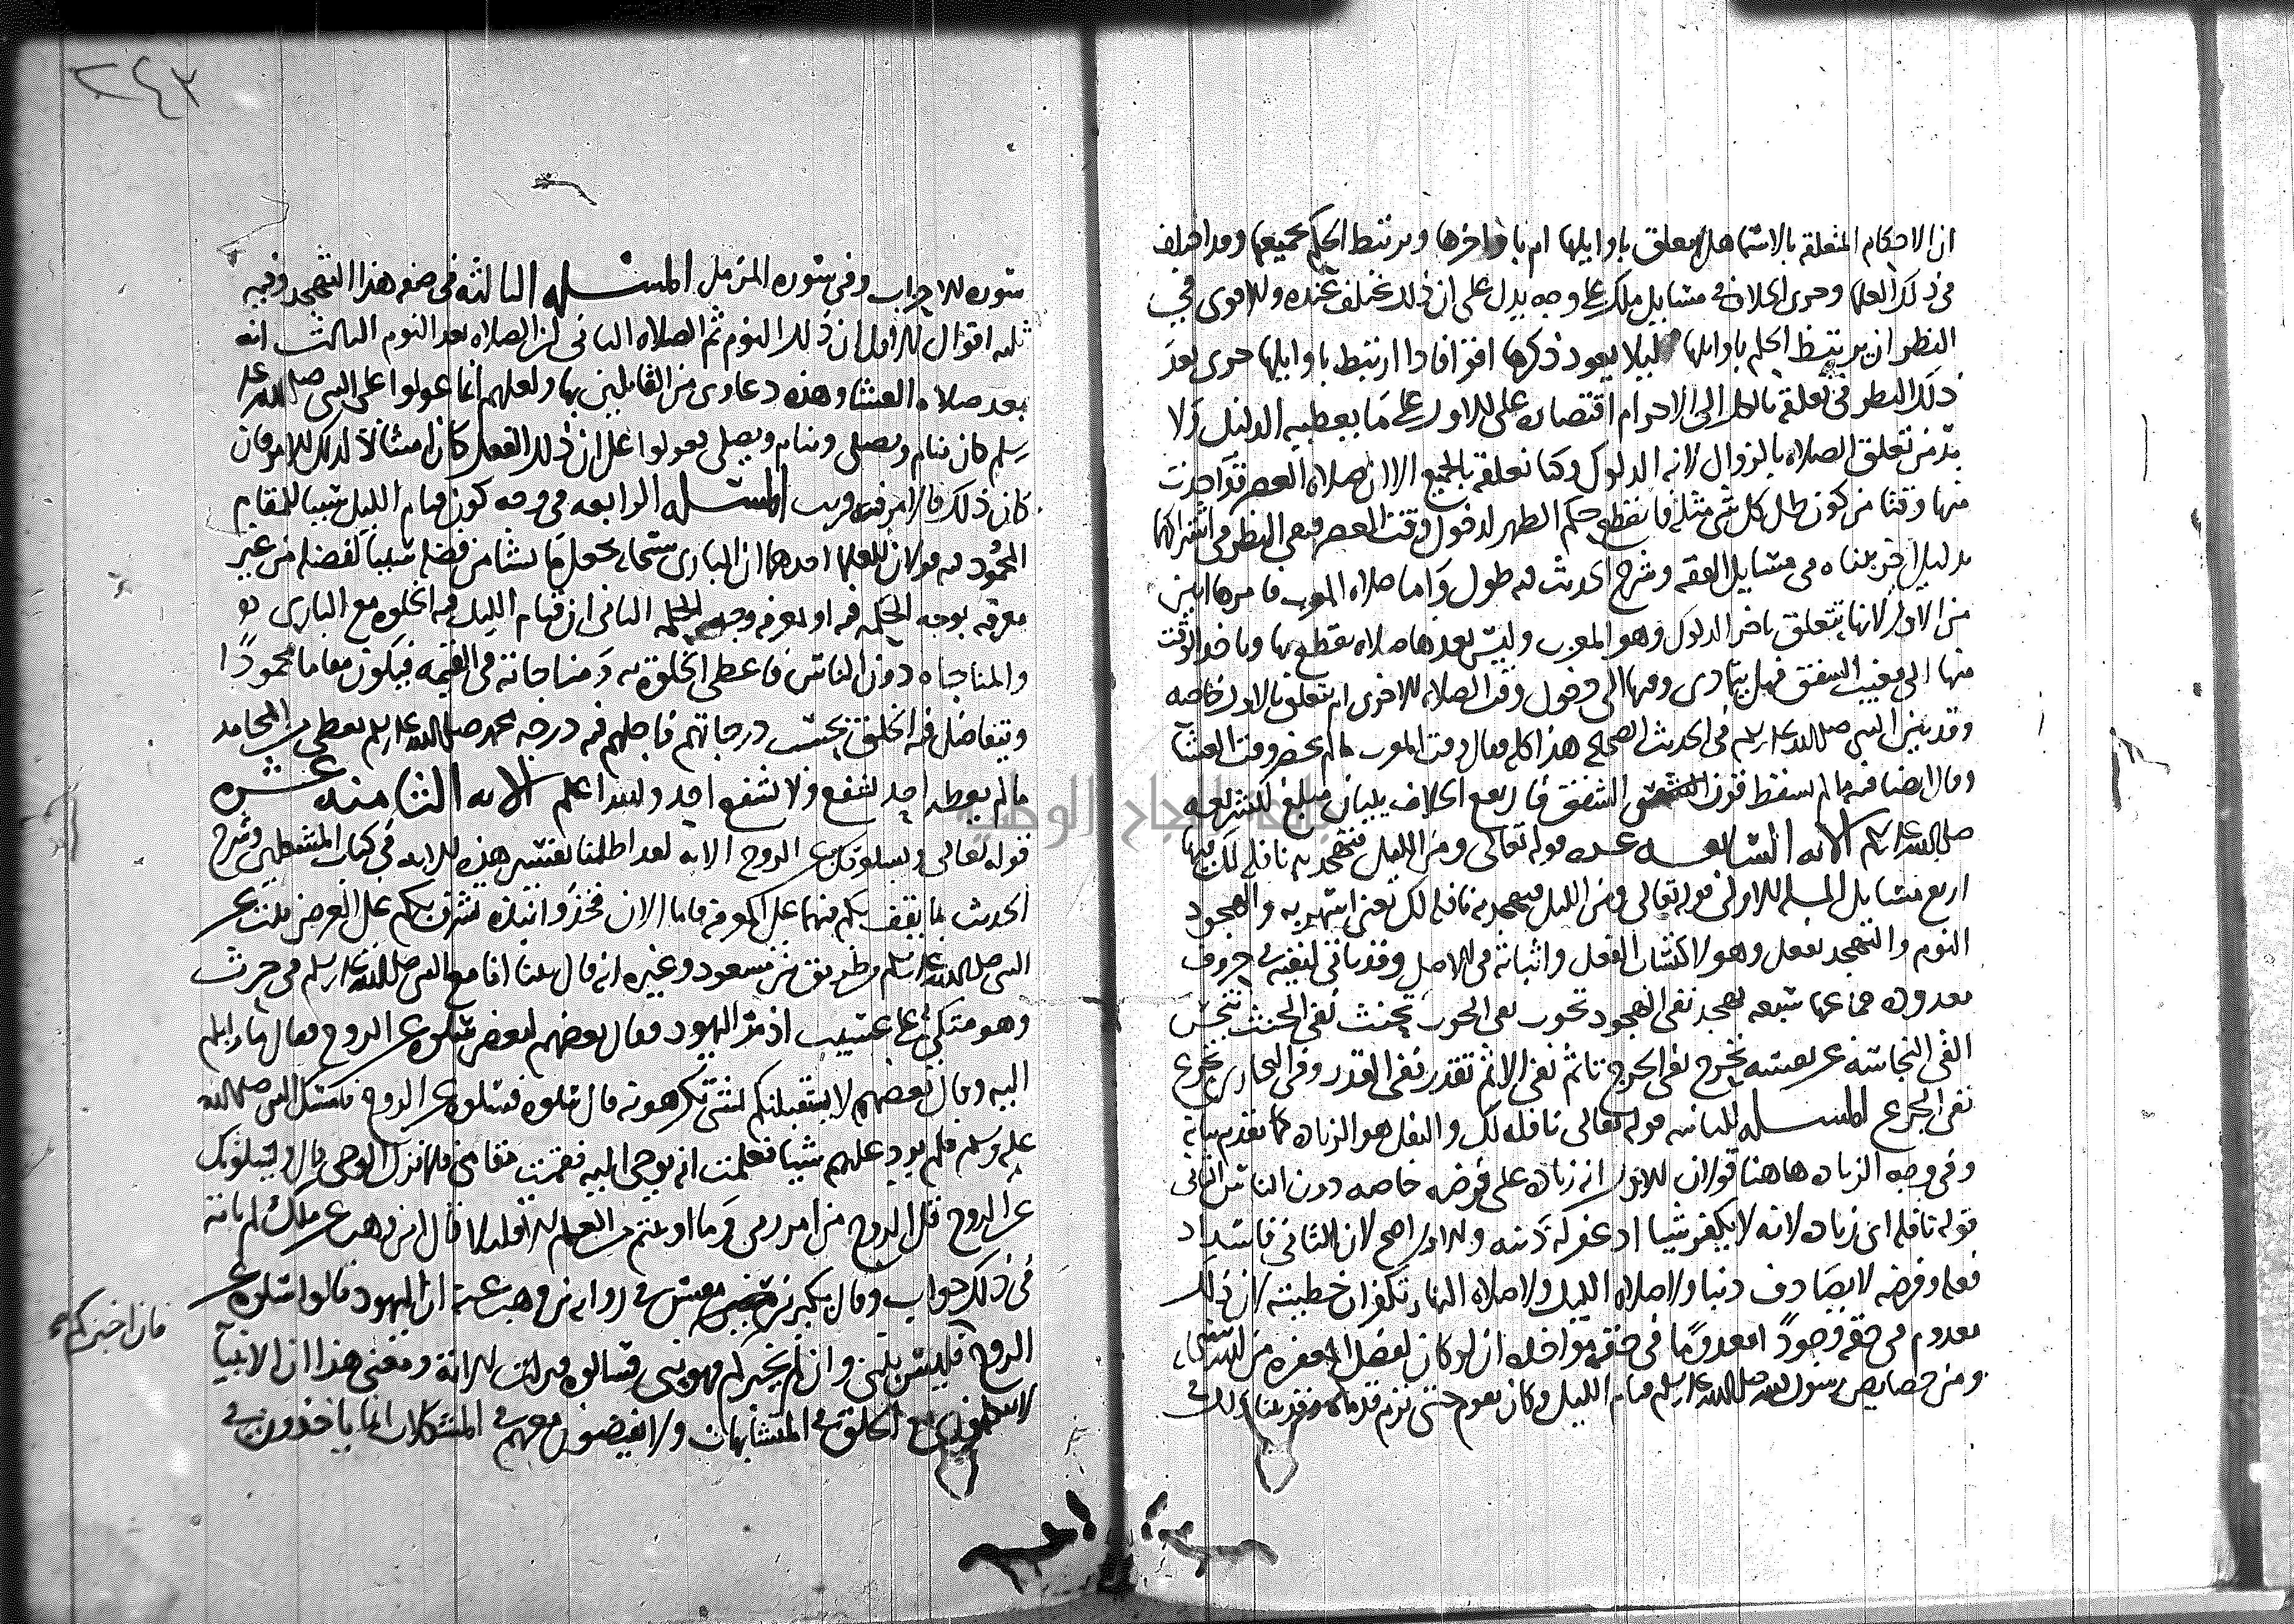 ان الاحكام المتعلقه بالاسما هل تتعلق باوايلها ام باواخرها ويرتبط الحكم بجميعها وقد اختلف
في ذلك العلما وجرى الخلاف في مسايل ملك على وجه يدل على ان ذلك مختلف عنده والاقوى في
النظر ان يرتبط الحكم باوايلها ليلا يعود ذكرها فاذا ارتبط باوايلها جرى بعد
ذلك النظر في تعلقه بالكل الى الاحرام اقتصاره على الاول على ما يعطيه الدليل ولا
بد من تعلق الصلاه بالزوال لانه الدلوك وكنا نعلقه بالجميع الا ان صلاه العصر قد اخذت
منها وقتا من كون ظل كل شي مثله فانقطع حكم الظهر لدخول وقت العصر فبقي النظر في اشتراكهما
بدليل اخر بيناه في مسايل الفقه وشرح الحديث فيه طول واما صلاه المغرب فامرها ابين
من الاول لانها تتعلق باخر الدلوك وهو المغرب وليس بعدها صلاه تقطع بها وياخذ الوقت
منها الى مغيب الشفق فهل يتمادى وقتها الى دخول وقت الصلاه الاخرى ام يتعلق بالاول خاصه
وقد بين النبي صلى الله عليه وسلم في الحديث الصحيح هذا كله فقال وقت المغرب ما لم يحضر وقت العشا
وقال ايضا فيه ما لم يسقط فور الشفق فارتفع الخلاف ببيان مبلغ الشريعه
صلى الله عليه وسلم الايه السابعه عشره قوله تعالى ومن الليل فتهجد به نافله لك فيها
اربع مسايل المسله الاولى قوله تعالى ومن الليل فتهجد به نافله لك يعني اسهر به والهجود
النوم والتهجد تفعل وهو لاكتساب الفعل واثباته في الاصل وقد ياتي لنفيه في حروف
معدوده جماعها سبعه تهجد نفى الهجود تحوب نفى الحوب تحنث نفى الحنث تنجس
القى النجاسه عن نفسه تحرج نفى الحرج تاثم نفى الاثم تقذر نفى القذر وفي البخاري تجزع
نفى الجزع المسله الثانيه قوله تعالى نافله لك والنفل هو الزياده كما تقدم بيانه
وفي وجه الزياده هاهنا قولان الاول انه زياده على فرضه خاصه دون الناس الثاني
قوله نافله اي زياده لانه لا يكفر شيا اذ غفر له ذنبه والاول اصح لان الثاني فاسد اذ
فعله وفرضه لا يصادف ذنبا ولا صلاه الليل ولا صلاه النهار تكفران خطيئه لان ذلك
معدوم في حقه وجودا معدوما في حقه مواخذه ان لو كان لفضل المغفره من الله سبحانه
ومن خصايص رسول الله صلى الله عليه وسلم قيام الليل وكان يقوم حتى ترم قدماه وقد بينا ذلك في
سوره الاحزاب وفي سوره المزمل المسله الثالثه في صفه هذا التهجد وفيه
ثلثه اقوال الاول ان ذلك النوم ثم الصلاه الثاني انه الصلاه بعد النوم الثالث انه
بعد صلاه العشا وهذه دعاوى من القايلين بها ولعلهم انما عولوا على النبي صلى الله عليه
وسلم كان ينام ويصلي وينام ويصلي فعولوا على ان ذلك الفعل كان امتثالا لذلك الامر فان
كان ذلك فالامر فيه قريب المسله الرابعه في وجه كون قيام الليل سببا للمقام
المحمود فيه قولان للعلما احدهما ان الباري سبحانه يجعل ما يشا من فضله سببا لفضله من غير
معرفه بوجه الحكمه فيه او بمعرفه وجه الحكمه الثاني ان قيام الليل فيه الخلوه مع الباري تع
والمناجاه دون الناس فاعطي الخلوه به ومناجاته في القيمه فيكون مقاما محمودا
ويتفاضل فيه الخلق بحسب درجاتهم فاجلهم فيه درجه محمد صلى الله عليه وسلم يعطى من المحامد
ما لم يعطه احد ليشفع ولا يشفع احد والله اعلم الايه الثامنه عشره
قوله تعالى ويسلونك عن الروح الايه لقد اطلنا نفس هذه الايه في كتاب المشكلين وشرح
الحديث بما يقف بكم منها على المعرفه فاما الان فخذوا نبذه تشرف بكم على الغرض ثبت عن
النبي صلى الله عليه وسلم من طريق بن مسعود وغيره انه قال بينا انا مع النبي صلى الله عليه وسلم في حرث
وهو متكي على عسيب اذ مر اليهود فقال بعضهم لبعض سلوه عن الروح فقال ما رابكم
اليه وقال بعضهم لا يستقبلنكم بشي تكرهونه قال سلوه فسلوه عن الروح فامسك النبي صلى الله
عليه وسلم فلم يرد عليهم شيا فعلمت انه يوحى اليه فقمت مقامي فلما نزل الوحي قال ويسلونك
عن الروح قل الروح من امر ربي وما اوتيتم من العلم الا قليلا قال ابن وهب عن ملك لم ياته
في ذلك جواب وقال بكير بن مضر في روايه بن وهب عنه ان اليهود قالوا سلوه عن
الروح فان اخبركم فليس بنبي وان لم يخبركم فهو نبي فسالوه فنزلت الايه ومعنى هذا ان الانبيا
لا يتكلمون مع الخلق في المتشابهات ولا يفيضون معهم في المشكلات انما ياخذون في